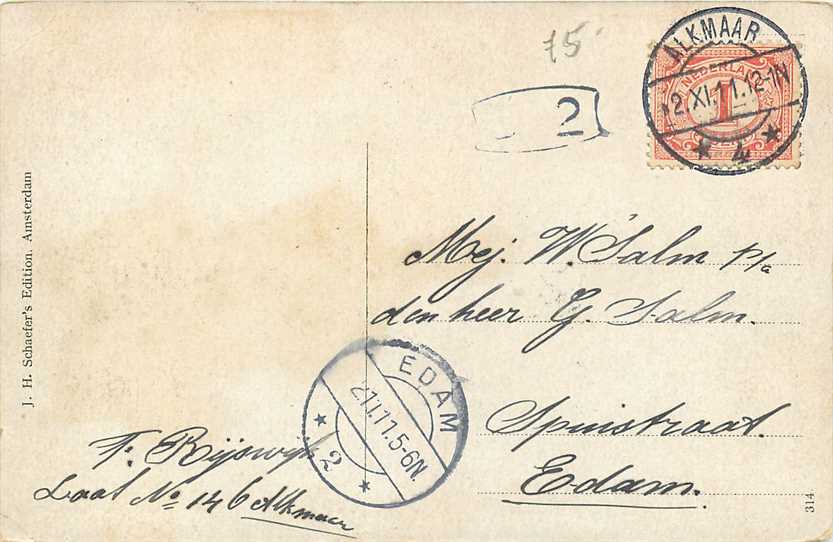 75
2
ALKMAAR
2.XI.11.12-1N
4
NEDERLAND
1
J. H. Schaefer's Edition. Amsterdam
Mej: W. Salm p/a
den heer G. Salm.
Spuistraat
Edam.
EDAM
2.11.11.5-6N.
2
F. Rijswijk
Laat No 146 Alkmaar
314